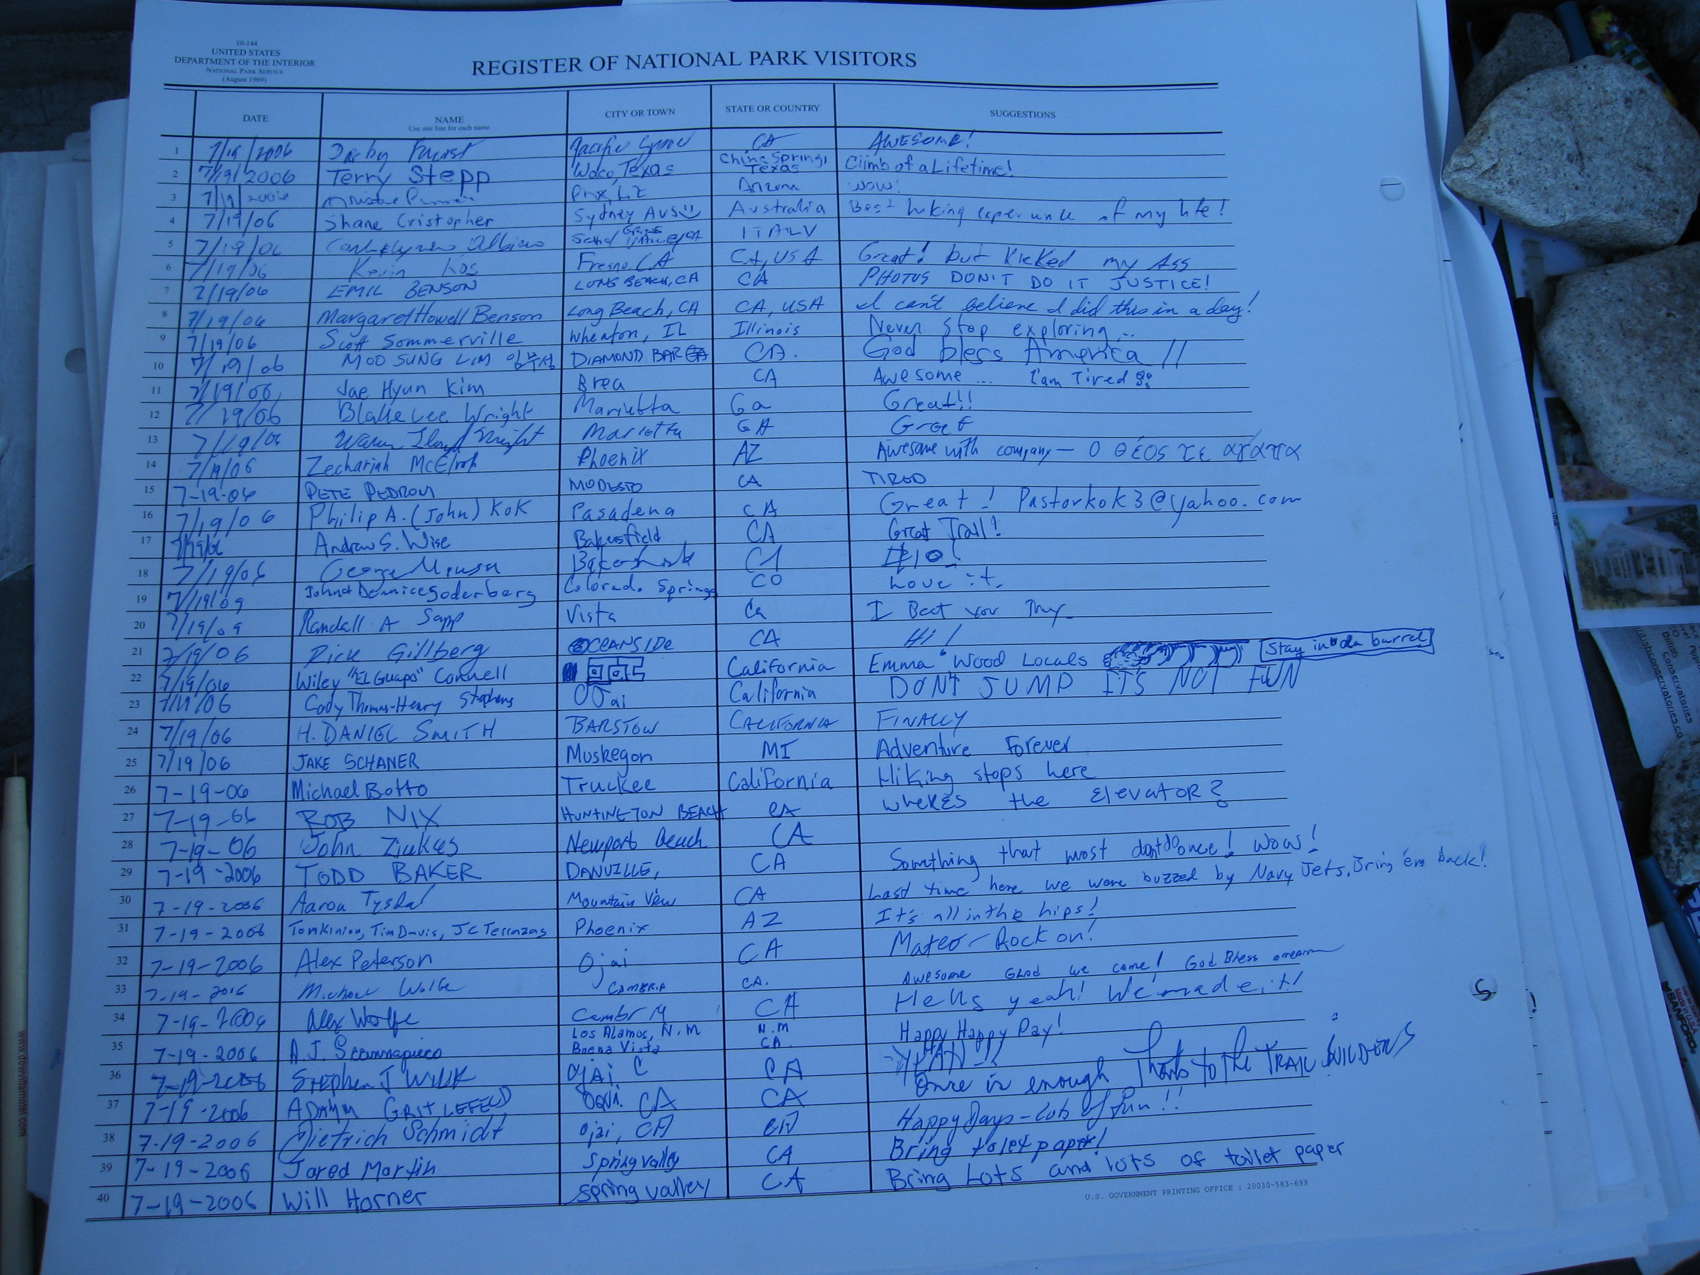 10-144
UNITED STATES
DEPARTMENT OF THE INTERIOR
NATIONAL PARK SERVICE
(August 1969)
REGISTER OF NATIONAL PARK VISITORS
DATE NAME CITY OR TOWN STATE OR COUNTRY SUGGESTIONS
Use one line for each name
1 7/19/2006 CA AWESOME!
2 7/19/2006 Terry Stepp Waco, Texas China Springs, Texas Climb of a Lifetime!
3 Arizona WOW!
4 7/19/06 Shane Cristopher Sydney AUS Australia Best hiking experience of my life!
5 7/19/06 ITALY
6 7/19/06 Kevin Fresno, CA CA, USA Great! but Kicked my Ass
7 7/19/06 EMIL BENSON LONG BEACH, CA CA PHOTOS DON'T DO IT JUSTICE!
8 7/19/06 Margaret Howell Benson Long Beach, CA CA, USA I can't believe I did this in a day!
9 7/19/06 Scott Sommerville Wheaton, IL Illinois Never Stop exploring...
10 7/19/06 MOO SUNG LIM 임무성 DIAMOND BAR CA. God bless America !!
11 7/19/06 Jae Hyun Kim Brea CA Awesome ... I am Tired
12 7/19/06 Blake Lee Wright Marietta Ga Great!!
13 7/19/06 Marietta GA Great
14 7/19/06 Zechariah McElroy Phoenix AZ Awesome with company — Ο θέος
15 7-19-06 PETE PEDRON MODESTO CA TIRED
16 7/19/06 Philip A. (John) Kok Pasadena CA Great! Pastorkok3@yahoo.com
17 7/19/06 Andrew S. Wise Bakersfield CA Great Trail!
18 7/19/06 George
19 Soderberg Colorado Springs CO Love it.
20 Randall A Sapp Vista Ca I Beat you
21 7/19/06 Dick Gillberg OCEANSIDE CA Hi!
22 7/19/06 Wiley "El Guapo" Cornell California Emma Wood Locals Stay in da barrel
23 7/19/06 Cody Thomas-Henry Stephens Ojai California DON'T JUMP IT'S NOT FUN
24 7/19/06 H. DANIEL SMITH BARSTOW CALIFORNIA FINALLY
25 7/19/06 JAKE SCHANER Muskegon MI Adventure Forever
26 7-19-06 Michael Botto Truckee California Hiking stops here
27 7-19-06 ROB NIX HUNTINGTON BEACH CA WHERE'S the ELEVATOR?
28 7-19-06 John Newport Beach CA
29 7-19-2006 TODD BAKER DANVILLE, CA Something that most don't do once! Wow!
30 7-19-2006 Aaron Mountain View CA Last time here we were buzzed by Navy Jets, bring 'em back!
31 7-19-2006 Tom Kinion, Tim Davis, JC Terrazas Phoenix AZ It's all in the hips!
32 7-19-2006 Alex Peterson Ojai CA Mateo - Rock on!
33 7-19-2006 Michael Wolfe CAMBRIA CA. Awesome Glad we came! God Bless
34 7-19-2006 Alex Wolfe Cambria CA Hells yeah! We made it!
35 7-19-2006 A.J. Scannapieco Los Alamos, N.M Buena Vista N.M CA. Happy Happy Day!
36 7-19-2006 STEPHEN J Ojai, C CA
37 7-19-2006 Ojai. CA CA Once is enough Thanks to the TRAIL BUILDERS
38 7-19-2006 Dietrich Schmidt Ojai, CA CA Happy Days - lots of fun!!
39 7-19-2006 Jared Martin Spring valley CA Bring toilet paper!
40 7-19-2006 Will Horner Spring valley CA Bring Lots and lots of toilet paper
U.S. GOVERNMENT PRINTING OFFICE